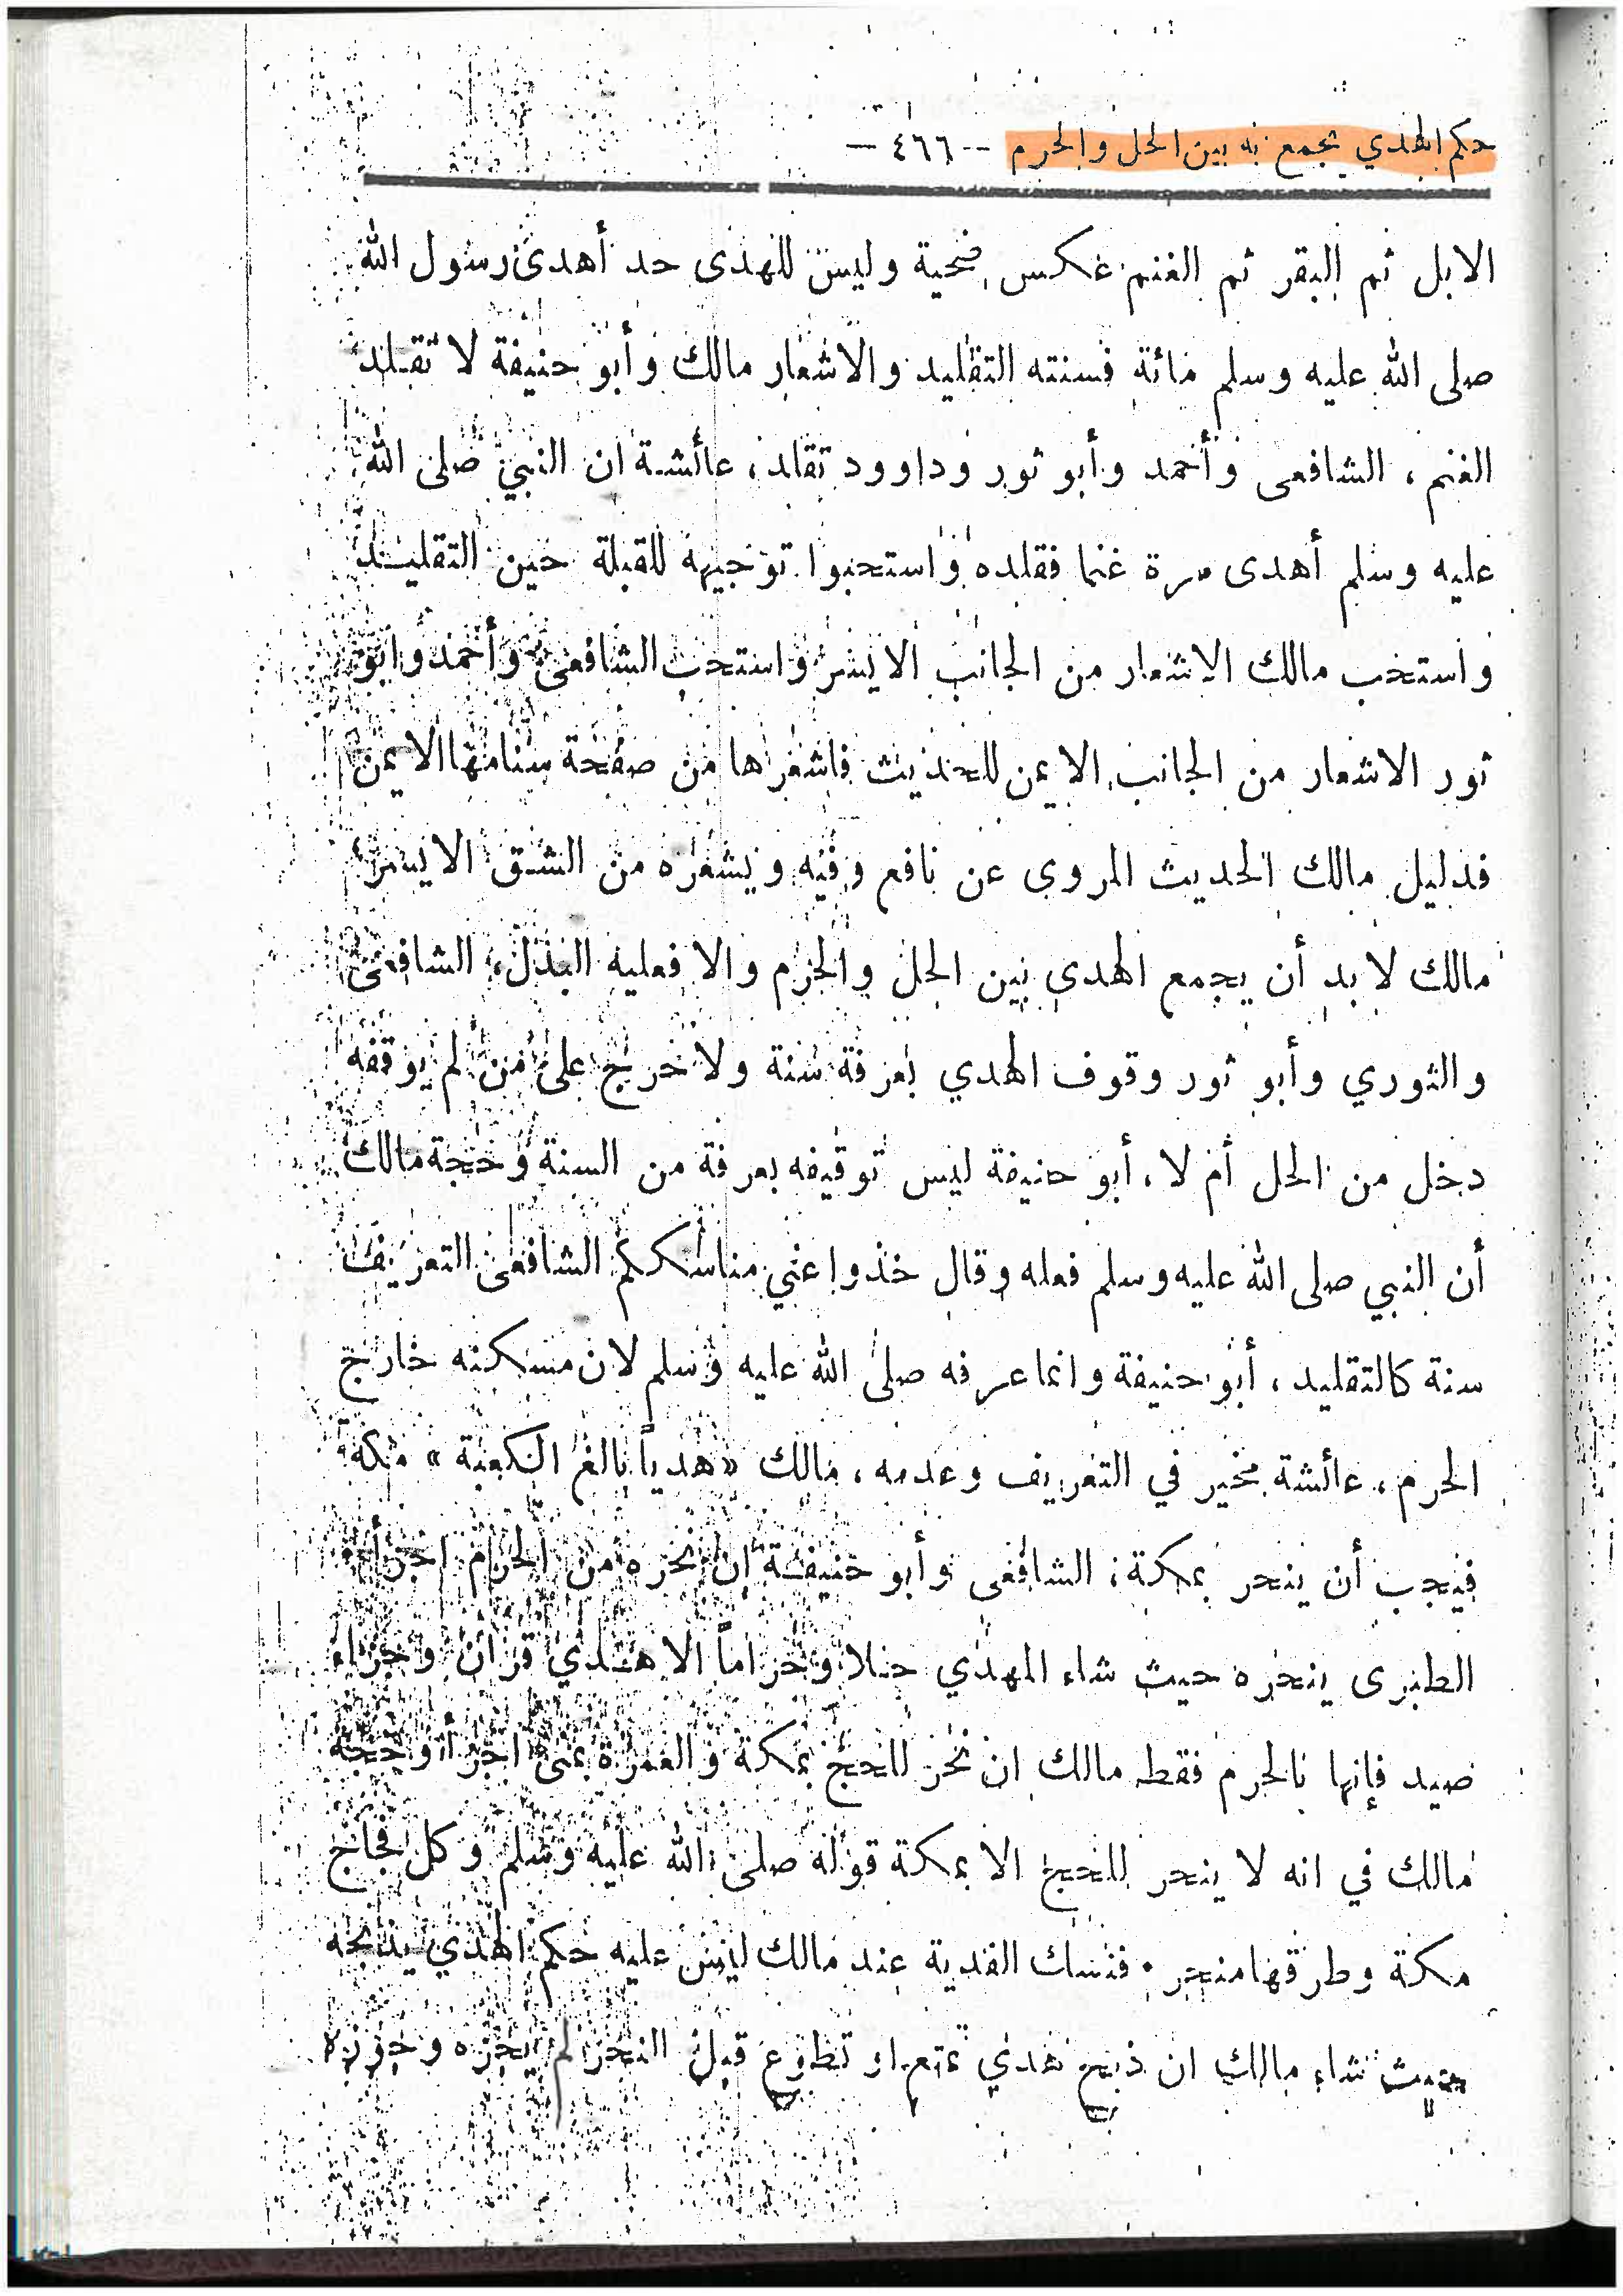 حكم الهدي يجمع به بين الحل والحرم -- ٤٦٦ --
الابل ثم البقر ثم الغنم عكس ضحية وليس للهدى حد أهدى رسول الله
صلى الله عليه وسلم مائة فسنته التقليد والاشعار مالك وأبو حنيفة لا تقلد
الغنم ، الشافعى وأحمد وأبو ثور وداوود تقلد ، عائشة ان النبي صلى الله
عليه وسلم أهدى مرة غنما فقلده واستحبوا توجيهه للقبلة حين التقليد
واستحب مالك الاشعار من الجانب الايسر واستحب الشافعى وأحمد وابو
ثور الاشعار من الجانب الايمن للحديث فاشعرها من صفحة سنامها الايمن
فدليل مالك الحديث المروى عن نافع وفيه ويشعره من الشق الايسر
مالك لا بد أن يجمع الهدى بين الحل والحرم والا فعليه البدل ، الشافعى
والثوري وأبو ثور وقوف الهدي بعرفة سنة ولا حرج على من لم يوقفه
دخل من الحل أم لا ، أبو حنيفة ليس توقيفه بعرفة من السنة وحجة مالك
أن النبي صلى الله عليه وسلم فعله وقال خذوا عني مناسككم الشافعى التعريف
سنة كالتقليد ، أبو حنيفة وانما عرفه صلى الله عليه وسلم لان مسكنه خارج
الحرم ، عائشة مخير في التعريف وعدمه ، مالك « هدياً بالغ الكعبة » مكة
فيجب أن ينحر بمكة ، الشافعى وأبو حنيفة ان نحره من الحرام اجزأه
الطبرى ينحره حيث شاء المهدي حلا وحراماً الا هدي قران وجزاء
صيد فإنها بالحرم فقط مالك ان نحر للحج بمكة والعمرة بمنى اجزأ وحجة
مالك في انه لا ينحر للحج الا بمكة قوله صلى الله عليه وسلم وكل فجاج
مكة وطرقها منحر . فنسك الفدية عند مالك ليس عليه حكم الهدي يذبحه
حيث شاء مالك ان ذبح هدي تمتع او تطوع قبل النحر لم يجزه وجوزه